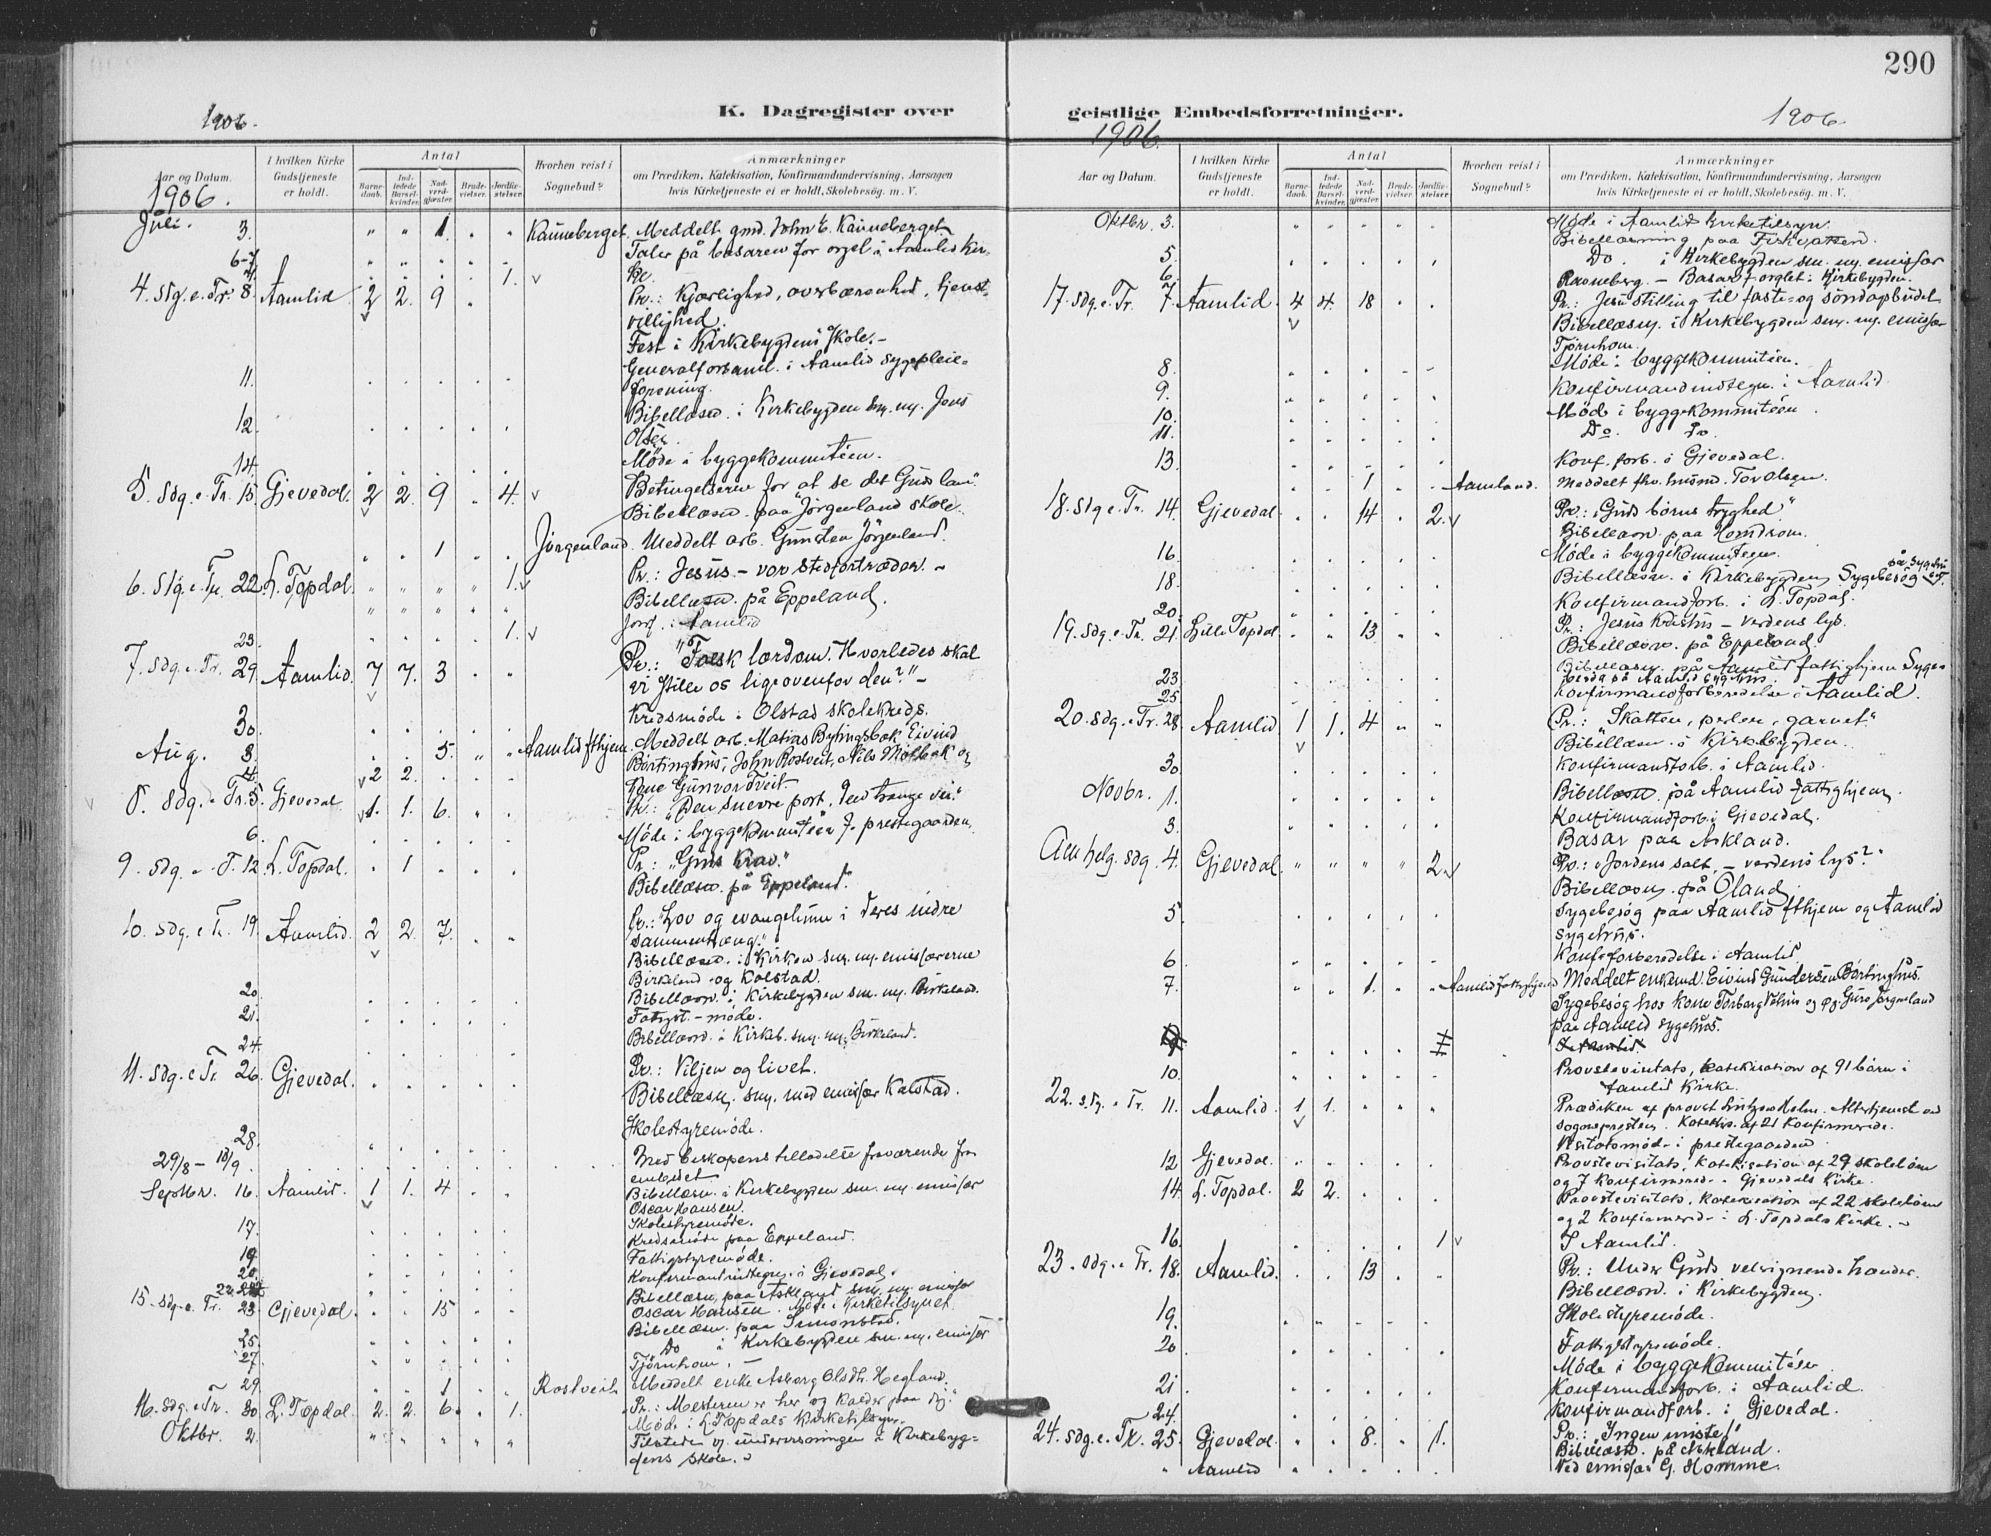 290
1906.
K. Dagregister over
Aar og Datum.
I hvilken Kirke Gudstjeneste er holdt.
Antal
Barne-daab.
Ind-ledede Barsel-kvinder.
Nad-verd-gjæster.
Brude-vielser.
Jordfæ-stelser.
Hvorhen reist i Sognebud?
Anmærkninger
om Prædiken, Katekisation, Konfirmandundervisning, Aarsagen
hvis Kirketjeneste ei er holdt, Skolebesøg. m. V.
1906.
Juli. 3. " " 1. . " Kanneberget. Meddelt gmd. John E. Kanneberget.
6-7 " " . . . Taler på basaren for orgel i Aamlid Kir-
7. . . . . 1. v ke.
4. Sdg. e. Tr. 8. Aamlid 2 2. 9 . Pr.: Kjærlighed, overbærenhed, tjenst-
villighed.
Fest i Kirkebygdens Skole. -
Generalforsaml. i Aamlid Sygepleie-
11. forening.
Bibellæsn. i Kirkebygden sm. m. Jens
12. Olsen.
Møde i byggekommitéen.
14.
5. Sdg. e. Tr. 15. Gjevedal. 2 2. 9 . 4. v Betingelserne for at se det Guds lam."
Bibellæsn. paa Jørgenland skole.
. . 1 . . Jørgenland. Meddelt arb. Gunsten Jørgenland.
6. Sdg. e. Tr. 22. L. Topdal. " " " " 1. v Pr.: Jesus - vor stedfortræder. -
Bibellæsn. på Eppeland.
23. . . . . 1. v Jordf. i Aamlid
7. Sdg. e. Tr. 29. Aamlid. 7 7. 3 . . Pr.: "Falsk lærdom. Hvorledes skal
vi stille os ligeovenfor den?" -
30. Kredsmøde i Olstad skolekreds.
Aug. 3. . . 5. " " Aamlid fthjem. Meddelt arb. Matias Eivind
Bortinghus, John Rostveit, Nils og
4. v 2 2. . . . Kone Gunvor Tveit.
8. Sdg. e. Tr. 5. Gjevedal v 1. 1. 6. . . Pr.: "Den snevre port, den trange vei."
6. Møde i byggekommitéen f. prestegaarden.
9. Sdg. e. T. 12. L. Topdal. . 1 . . . Pr.: "Guds Krav."
Bibellæsn. på Eppeland.
10. Sdg. e. Tr. 19. Aamlid. 2 2. 7. . . Pr.: "Lov og evangelium i deres indre
sammenhæng."
Bibellæsn. i Kirken sm. m. emissærerne
Birkeland og Kalstad.
20. Bibellæsn. i Kirkebygden sm. m. Birkeland.
21. Fattigst. - møde.
24. Bibellæsn. i Kirkeb. sm. m. Birkeland.
11. Sdg. e. Tr. 26. Gjevedal. . . . . . Pr.: Viljen og livet.
Bibellæsn. sm. med emissær Kalstad.
28. Skolestyremøde.
29/8 - 15/9. Med biskopens tilladelse fraværende fra
embedet
Septbr. 16. Aamlid. 1 1. 4 . . Bibellæsn. i Kirkebygden sm. m. emissær
Oscar Hansen.
17. Skolestyremøde.
Kredsmøde paa Eppeland.
19. Fattigstyremøde.
20. Konfirmantindtegn. i Gjevedal.
Bibellæsn. paa Askland sm. m. emissær
15. Sdg. e. Tr. 23. Gjevedal. . . 15 . . Oscar Hansen. Møde i Kirketilsynet.
25. Bibellæsn. paa Simonstad.
27. Do i Kirkebygden sm. m. emissær
Tjörnhom. -
29. " " 1 . . Rostveit Meddelt enke Asborg Olsdtr. Hegland.
16. Sdg. e. Tr. 30. L. Topdal. 2. 2. 6. . 1. "Pr.: Mesteren er her og kalder paa dig."
Møde i L. Topdals Kirketilsyn.
Oktbr. 2. Tilstede v. undervisningen i Kirkebyg-
dens skole.
geistlige Embedsforretninger.
1906.
1906.
Aar og Datum.
I hvilken Kirke Gudstjeneste er holdt.
Antal
Barne-daab.
Ind-ledede Barsel-kvinder.
Nad-verd-gjæster.
Brude-vielser.
Jordfæ-stelser.
Hvorhen reist i Sognebud?
Anmærkninger
om Prædiken, Katekisation, Konfirmandundervisning, Aarsagen
hvis Kirketjeneste ei er holdt, Skolebesøg. m. V.
Oktbr. 3. Møde i Aamlid Kirketilsyn.
Bibellæsning paa
5. Do. i Kirkebygden sm. m. emissær
6. Ranneberg. - Basar f. orglet i Kirkebygden.
17. Sdg. e. Tr. 7. Aamlid. 4 4. 18 . . Pr.: Jesu stilling til faste- og søndagsbudet
v Bibellæsn. i Kirkebygden sm. m. emissær
Tjörnhom.
8. Møde i byggekommitéen.
9. Konfirmandindtegn. i Aamlid.
10. Møde i byggekommitéen.
11. Do. Do.
13. Konf. forb. i Gjevedal.
. . 1 . . Aamland. Meddelt fhv. Tov Olsen.
18. Sdg. e. Tr. 14. Gjevedal . . 14 . 2. v Pr.: "Guds børns tryghed"
Bibellæsn. paa Homdrom.
16. Møde i byggekommitéen.
18. Bibellæsn. i Kirkebygden. Sygebesøg på Sygehuset.
20. Konfirmandforb. i L. Topdal.
19. Sdg. e. Tr. 21. Lille Topdal. . . 13 . . Pr.: Jesus Kristus - verdens lys.
Bibellæsn. på Eppeland.
23. Bibellæsn. på Aamlid fattighjem Syge-
besøg på Aamlid Sygehus.
25. Konfirmandforberedelse i Aamlid.
20. Sdg. e. Tr. 28. Aamlid 1 1. 4 . " Pr.: "Skatten, perlen, garnet."
v Bibellæsn. i Kirkebygden.
30. Konfirmandforb. i Aamlid.
Novbr. 1. Bibellæsn. på Aamlid fattighjem.
3. Konfirmandforb. i Gjevedal.
Basar paa Askland.
All helg. sdg. 4. Gjevedal. " " " " 2. v Pr.: "Jordens salt, - verdens lys?"
Bibellæsn. på Öland.
5. Sygebesøg paa Aamlid fthjem og Aamlid
sygehus.
6. Konf. forberedelse i Aamlid.
7. . . 1. . " Aamlid fattighjem Meddelt enkemd. Eivind Gundersen Bortinghus.
Sygebesøg hos kone Torborg og pg. Guro Jørgenland
paa Aamlid sygehus.
I Aamlid.
10. Provstevisitats, katekisation af 91 børn i
Aamlid Kirke.
22. Sdg. e. Tr. 11. Aamlid. 1 1. . . . Prædiken af provst Holm. Altertjeneste ved
v sognepresten. Katekis. af 21 Konfirmerede.
Visitatsmøde i prestegaarden.
12. Gjevedal. Provstevisitats, katekisation af 29 skolebørn
og 7 konfirmerede i Gjevedals Kirke.
14. L. Topdal. 2 2. . . . Provstevisitats. katekisation af 22 skolebørn
og 2 Konfirmerede i L. Topdals Kirke. -
16. . . . . 1 v I Aamlid.
23. Sdg. e. Tr. 18. Aamlid. . . 13 . " Pr.: Under Guds velsignende hænder.
Bibellæsn. i Kirkebygden.
19. Skolestyremøde.
20. Fattigstyremøde.
Møde i byggekommitéen.
21. Konfirmandforb. i Aamlid.
24. Konfirmandforb. i Gjevedal.
24. Sdg. e. Tr. 25. Gjevedal. . . 8. . 1. Pr.: "Ingen mistet!"
Bibellæsn. på Askland.
" Aamlid Ved emissær G. Homme.